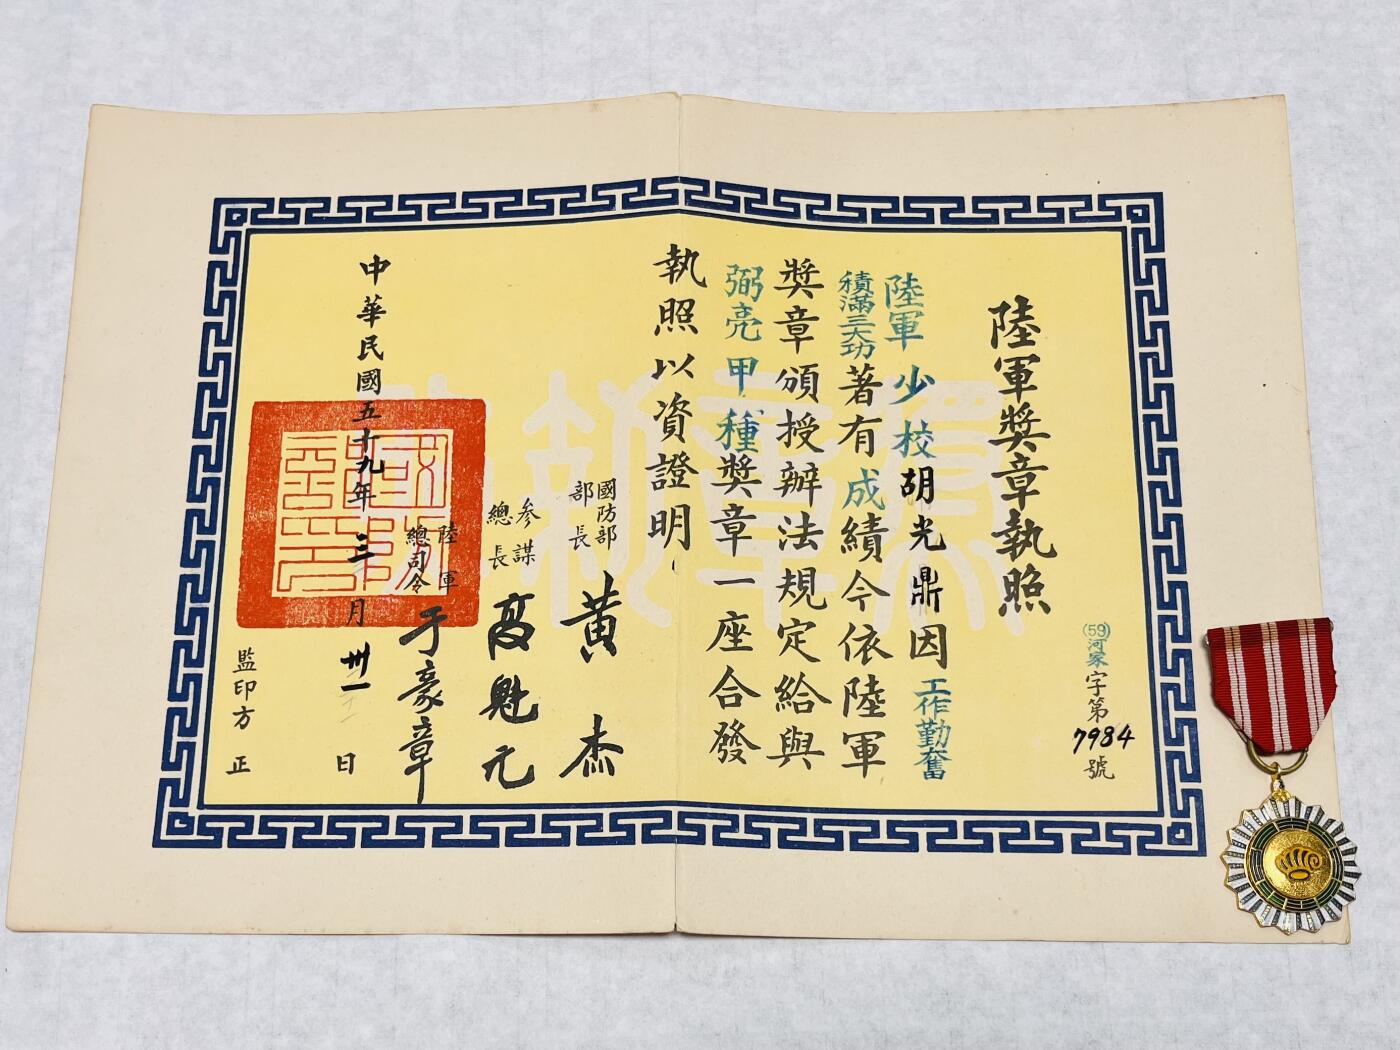 陸軍獎章執照
(59)河家字第7984號
陸軍少校胡光鼎因工作勤奮
積滿三大功著有成績今依陸軍
獎章頒授辦法規定給與
弼亮甲種獎章一座合發
執照以資證明
國防部部長 黃杰
參謀總長 高魁元
陸軍總司令 于豪章
中華民國五十九年三月卅一日
監印方正